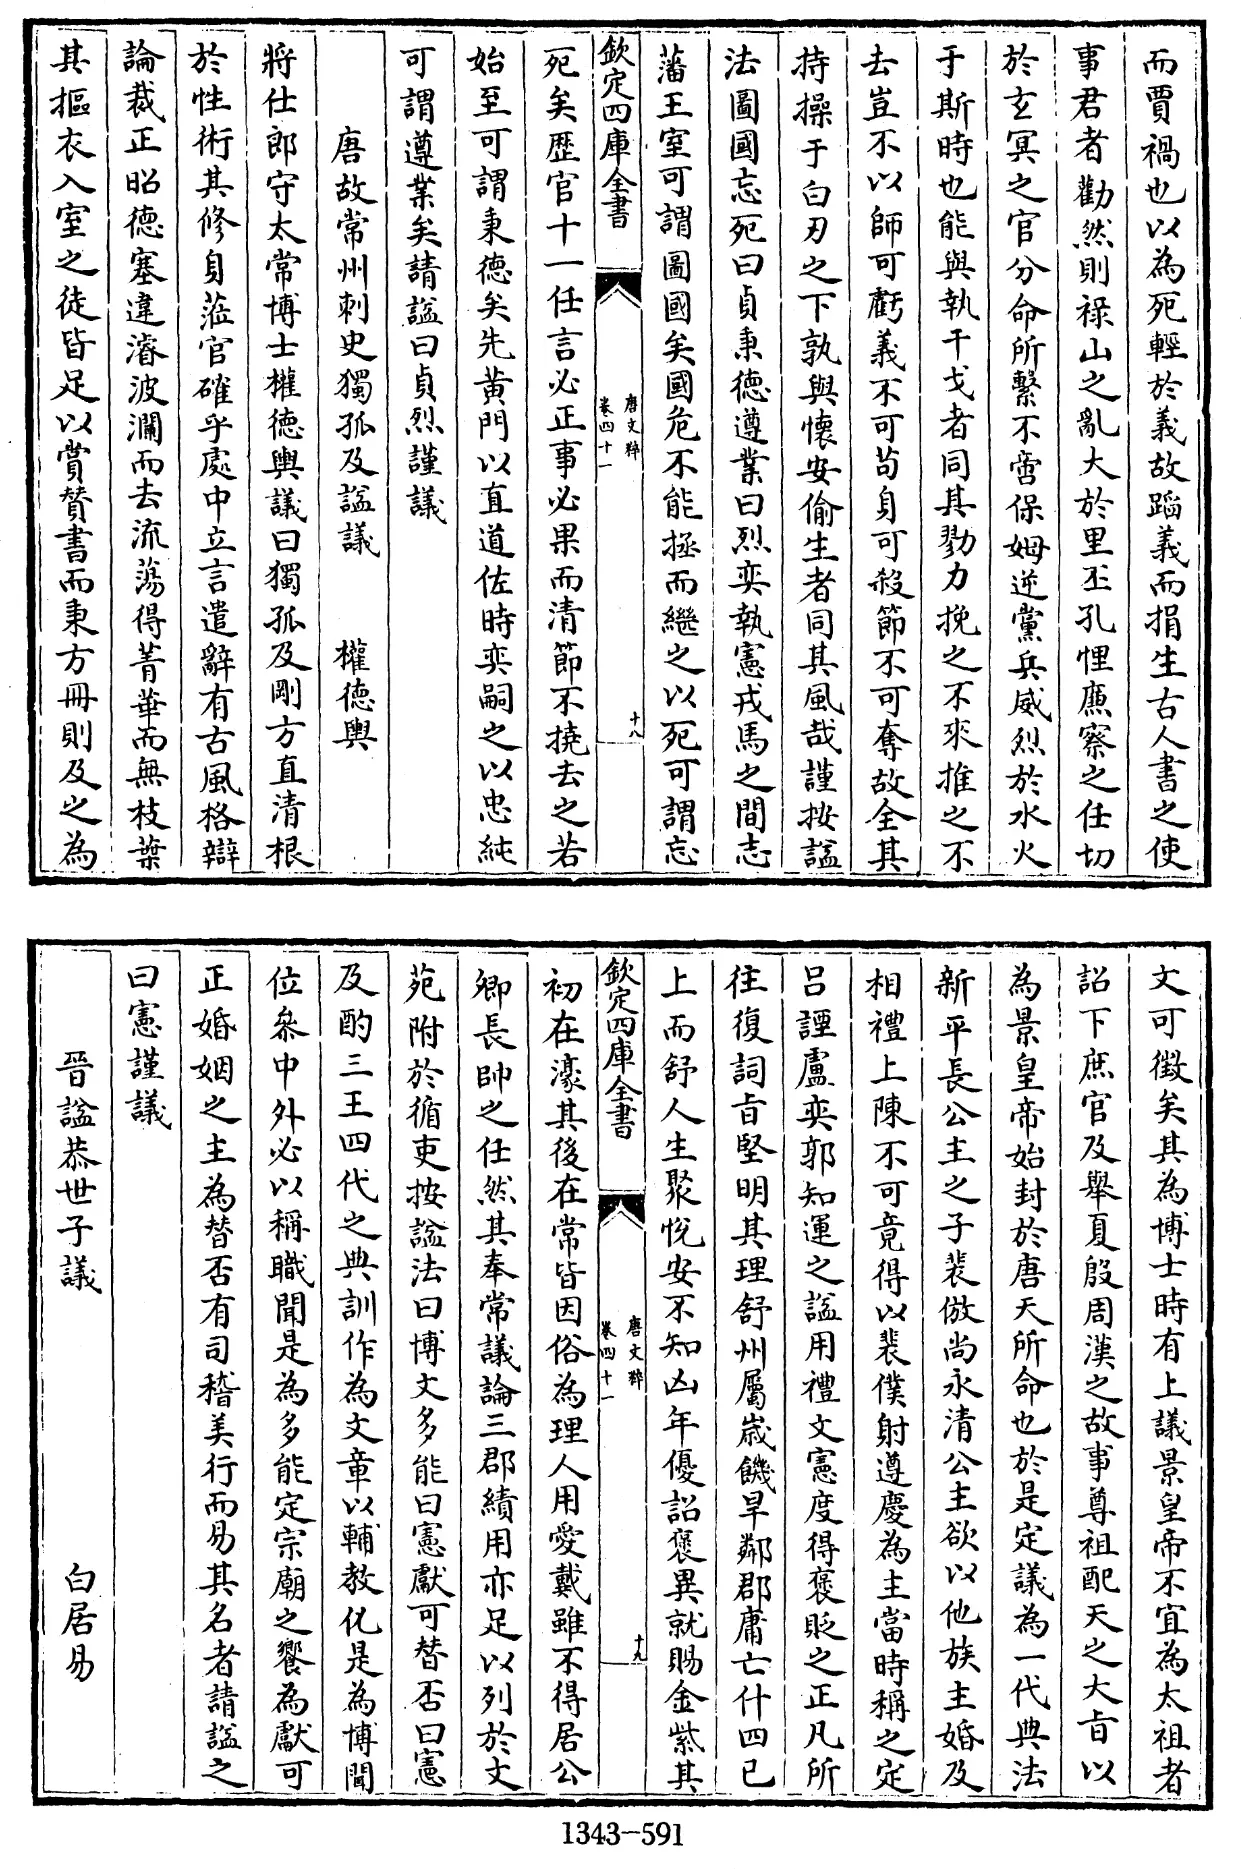 而賈禍也以為死輕於義故蹈義而捐生古人書之使
事君者勸然則禄山之亂大於里丕孔悝廌察之任切
於玄冥之官分命所繫不啻保姆逆黨兵威烈於水火
于斯時也能與執干戈者同其勠力挽之不來推之不
去豈不以師可虧義不可苟身可殺節不可奪故全其
持操于白刃之下孰與懷安偷生者同其風哉謹按諡
法圖國忘死曰貞秉德遵業曰烈奕執憲戎馬之間志
藩王室可謂圖國矣國危不能拯而繼之以死可謂忘
欽定四庫全書
唐文粹
卷四十一
十八
死矣歷官十一任言必正事必果而清節不撓去之若
始至可謂秉德矣先黃門以直道佐時奕嗣之以忠純
可謂遵業矣請諡曰貞烈謹議
唐故常州刺史獨孤及諡議 權德輿
將仕郎守太常博士權德輿議曰獨孤及剛方直清根
於性術其修身蒞官確乎處中立言遣辭有古風格辯
論裁正昭德塞違濬波瀾而去流蕩得菁華而無枝葉
其摳衣入室之徒皆足以賞賛書而秉方冊則及之為
文可徵矣其為博士時有上議景皇帝不宜為太祖者
詔下庶官及舉夏殷周漢之故事尊祖配天之大旨以
為景皇帝始封於唐天所命也於是定議為一代典法
新平長公主之子裴倣尚永清公主欲以他族主婚及
相禮上陳不可竟得以裴僕射遵慶為主當時稱之定
吕諲盧奕郭知運之諡用禮文憲度得褒貶之正凡所
往復詞旨堅明其理舒州屬歲饑旱鄰郡庸亡什四已
上而舒人生聚悅安不知凶年優詔褒異就賜金紫其
欽定四庫全書
唐文粹
卷四十一
十九
初在濠其後在常皆因俗為理人用愛戴雖不得居公
卿長帥之任然其奉常議論三郡績用亦足以列於文
苑附於循吏按諡法曰博文多能曰憲獻可替否曰憲
及酌三王四代之典訓作為文章以輔教化是為博聞
位叅中外必以稱職聞是為多能定宗廟之饗為獻可
正婚姻之主為替否有司稽美行而易其名者請諡之
曰憲謹議
晉諡恭世子議 白居易
1343-591